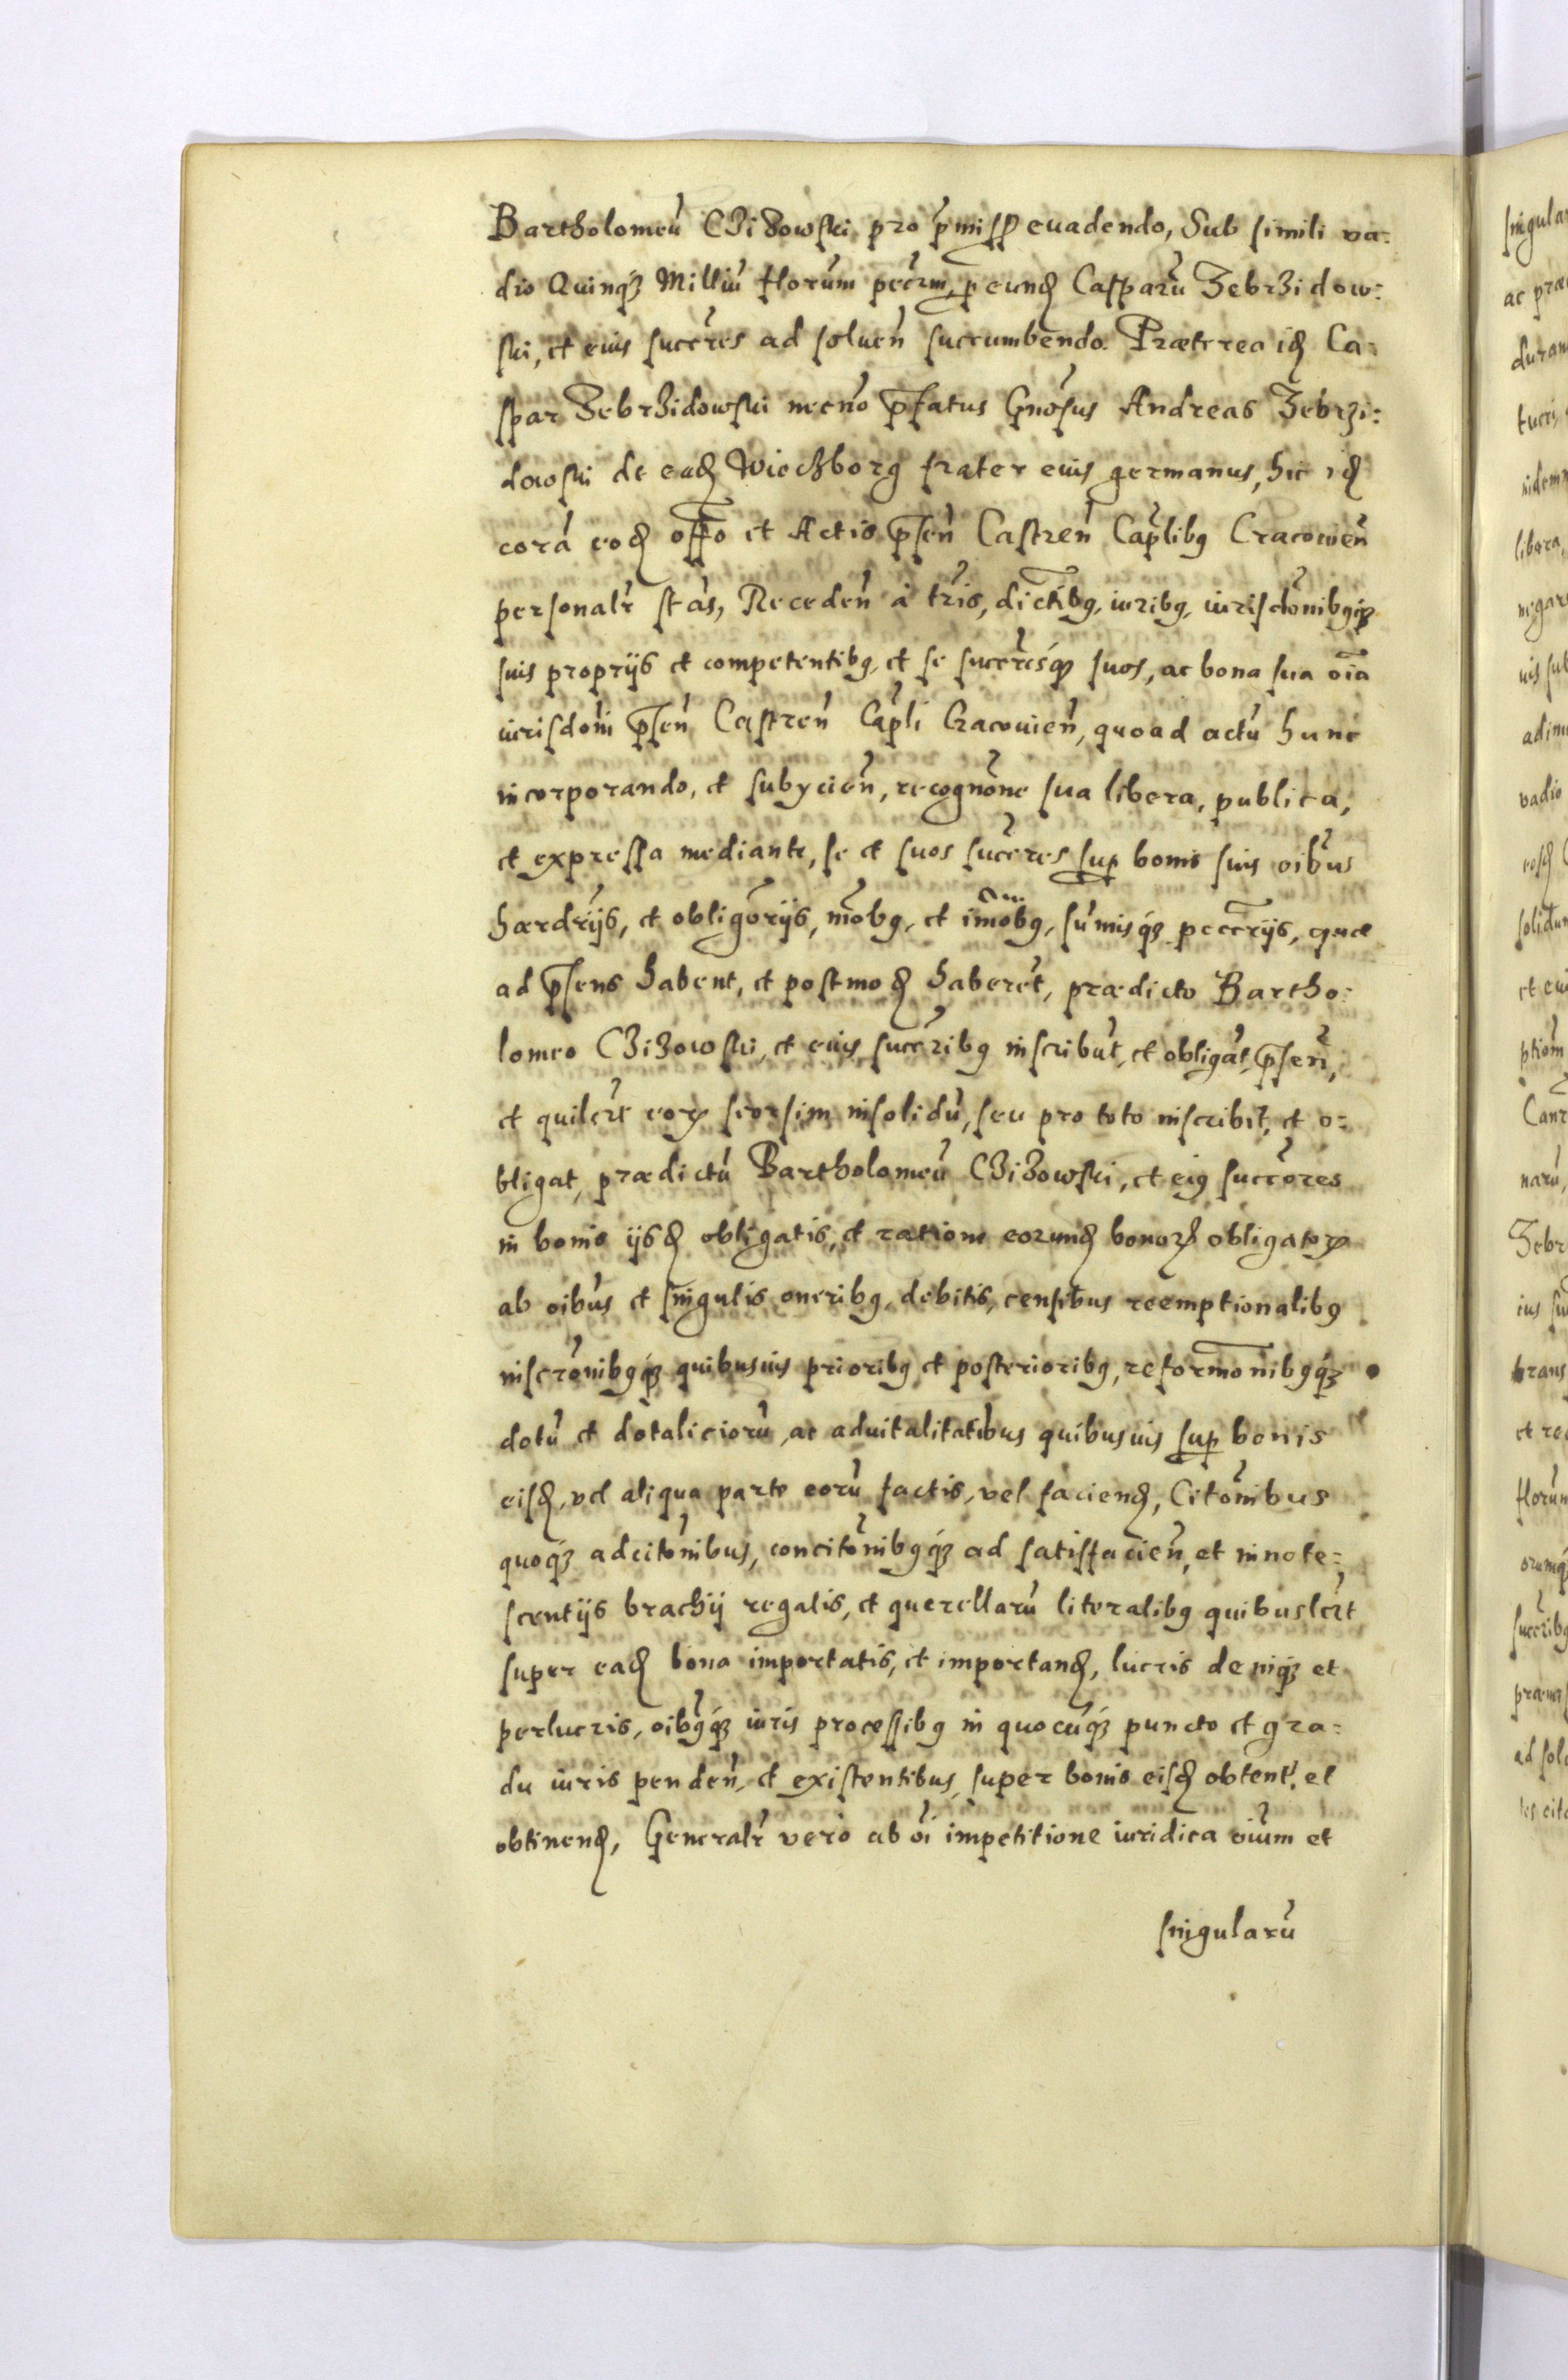 Bartholomeũ Czizowski pro p̃miss̃ euadendo, Sub simili va:
dio Quinq₃ Milliũ florũm pecũm, p eund̃ Casparũ Zebrzidow:
ski, et eius succẽres ad soluen̄ succumbendo. Præterea id̃ Ca:
spar Zebrzidowski necno p̃fatus Gnõsus Andreas Zebrzi:
dowski de ead̃ Wieczborg frater eius germanus, hic id̃
corã eod̃ offo et Actis p̃sen̄ Castren̄ Cap̃libꝯ Cracouien̄
personalr̃ stãs, Receden̄ à tr̃is, dictĩbꝯ, iuribꝯ, iurisdõnibꝯq₃
suis proprijs et competentibꝯ, et se succr̃esq₃ suos, ac bona sua oĩa
iurisdõni p̃sen̄ Castren̄ Cap̃li Cracouien̄, quoad actũ hunc
incorporando, et subycien̄, recognõne sua libera, publica,
et expressa mediante, se et suos succr̃es sup̱ bonis suis oĩbus
hærdrĩjs, et obligõrijs, mõbꝯ, et imõbꝯ, sũmisq₃ peccr̃ijs, quæ
ad p̃sens habent, et postmod̃ haberẽt, prædicto Bartho:
lomeo Czizowski, et eius succr̃ibꝯ inscribũt, et obligãt, p̃sen̄,
et quilr̃t eoꝝ seorsim insolidũ, seu pro toto inscribit, et o:
bligat, prædictũ Bartholomeũ Czizowski, et eiꝯ succõres
in bonis ijsd̃ obligatis, et ratione eorund̃ bonoꝝ obligatoꝝ
ab oĩbus et singulis oneribꝯ, debitis, censibus reemptionalibꝯ
inscrõnibꝯq₃ quibusuis prioribꝯ et posterioribꝯ, reformõnibꝯq₃
dotũ et dotaliciorũ, ac aduitalitatibus quibusuis sup̱ bonis
eisd̃, vel aliqua parte eorũ factis, vel faciend̃, Citõnibus
quoq₃ adcitõnibus, concitõnibꝯq₃ ad satisfacien̄, et innote:
scentijs brachij regalis, et querellarũ literalibꝯ quibuslr̃t
super ead̃ bona importatis, et importand̃, lucris deniq₃ et
perlucris, oĩbꝯq₃ iuris processibꝯ in quocũq₃ puncto et gra:
du iuris penden̄, et existentibus, super bonis eisd̃ obtent̃, et
obtinend̃, Generalr̃ vero ab oĩ impetitione iuridica oĩum et
singularũ